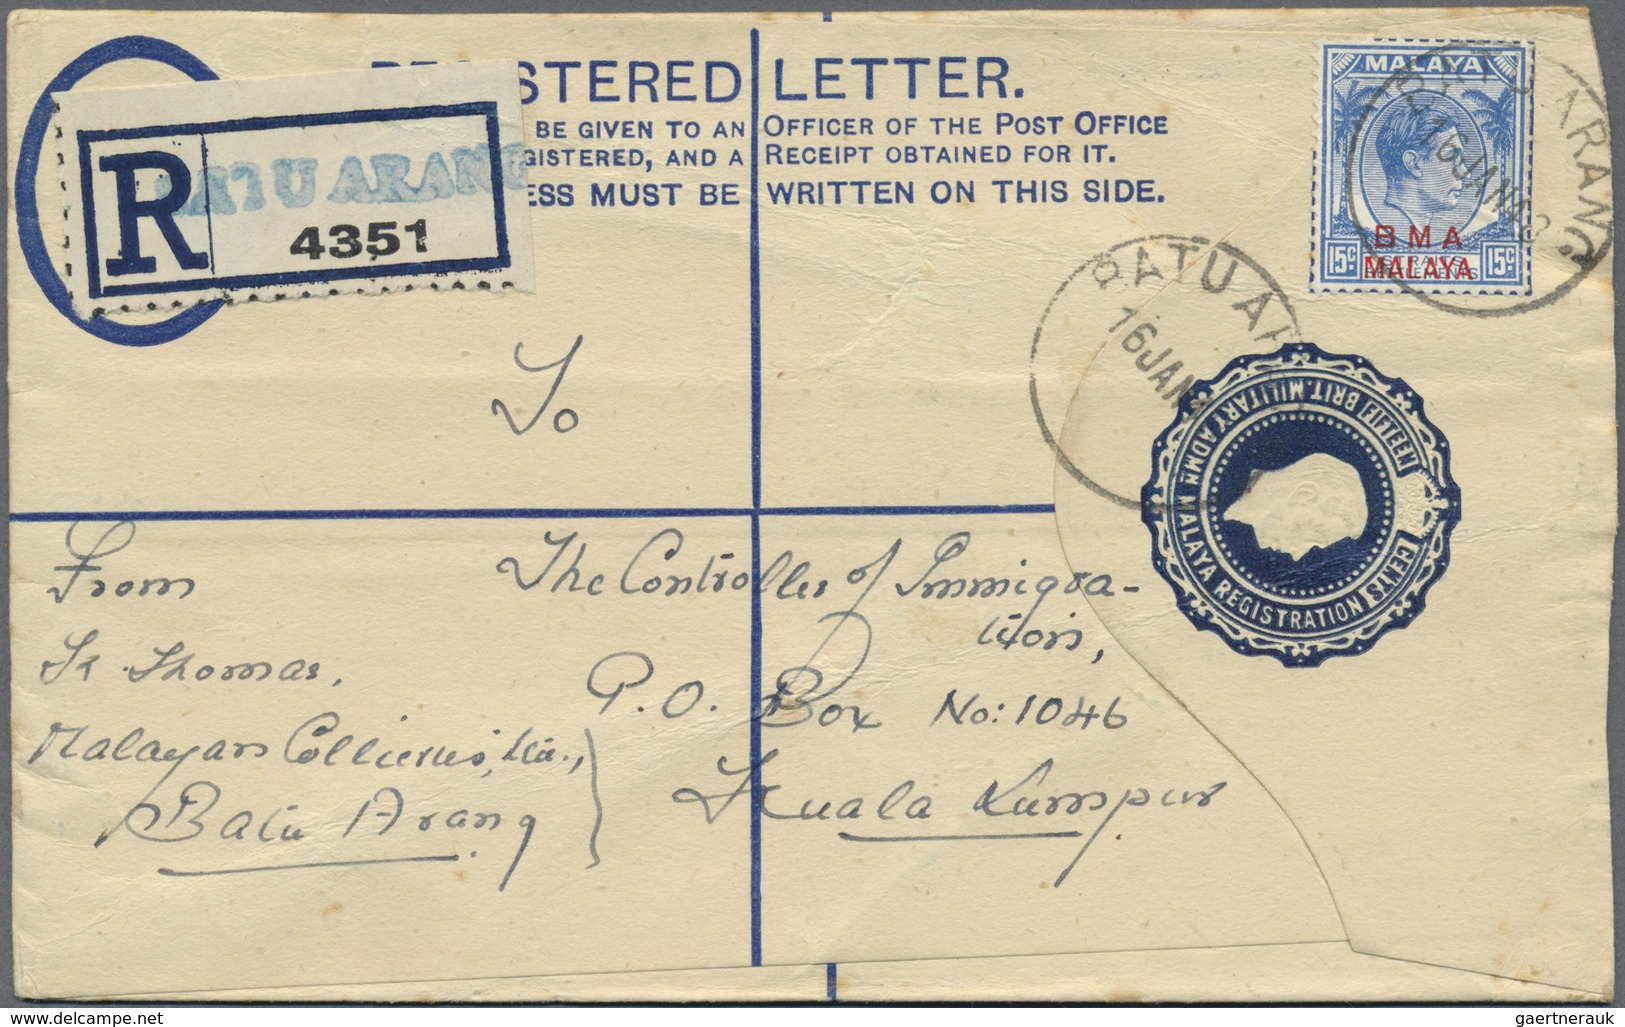 REGISTERED LETTER.
BE GIVEN TO AN OFFICER OF THE POST OFFICE
GISTERED, AND A RECEIPT OBTAINED FOR IT.
ESS MUST BE WRITTEN ON THIS SIDE.
R
BATU ARANG
4351
MALAYA
BMA
MALAYA
15c 15c
BATU ARANG
16 JAN 48
BATU AR
16 JAN
BRIT. MILITARY ADMN MALAYA REGISTRATION
FIFTEEN CENTS
To
The Controller of Immigra-
tion,
P.O. Box No: 1046
Kuala Lumpur
From
K Thomas,
Malayan Collieries, Ltd.,
Batu Arang
gaertnerauk@delcampe.com